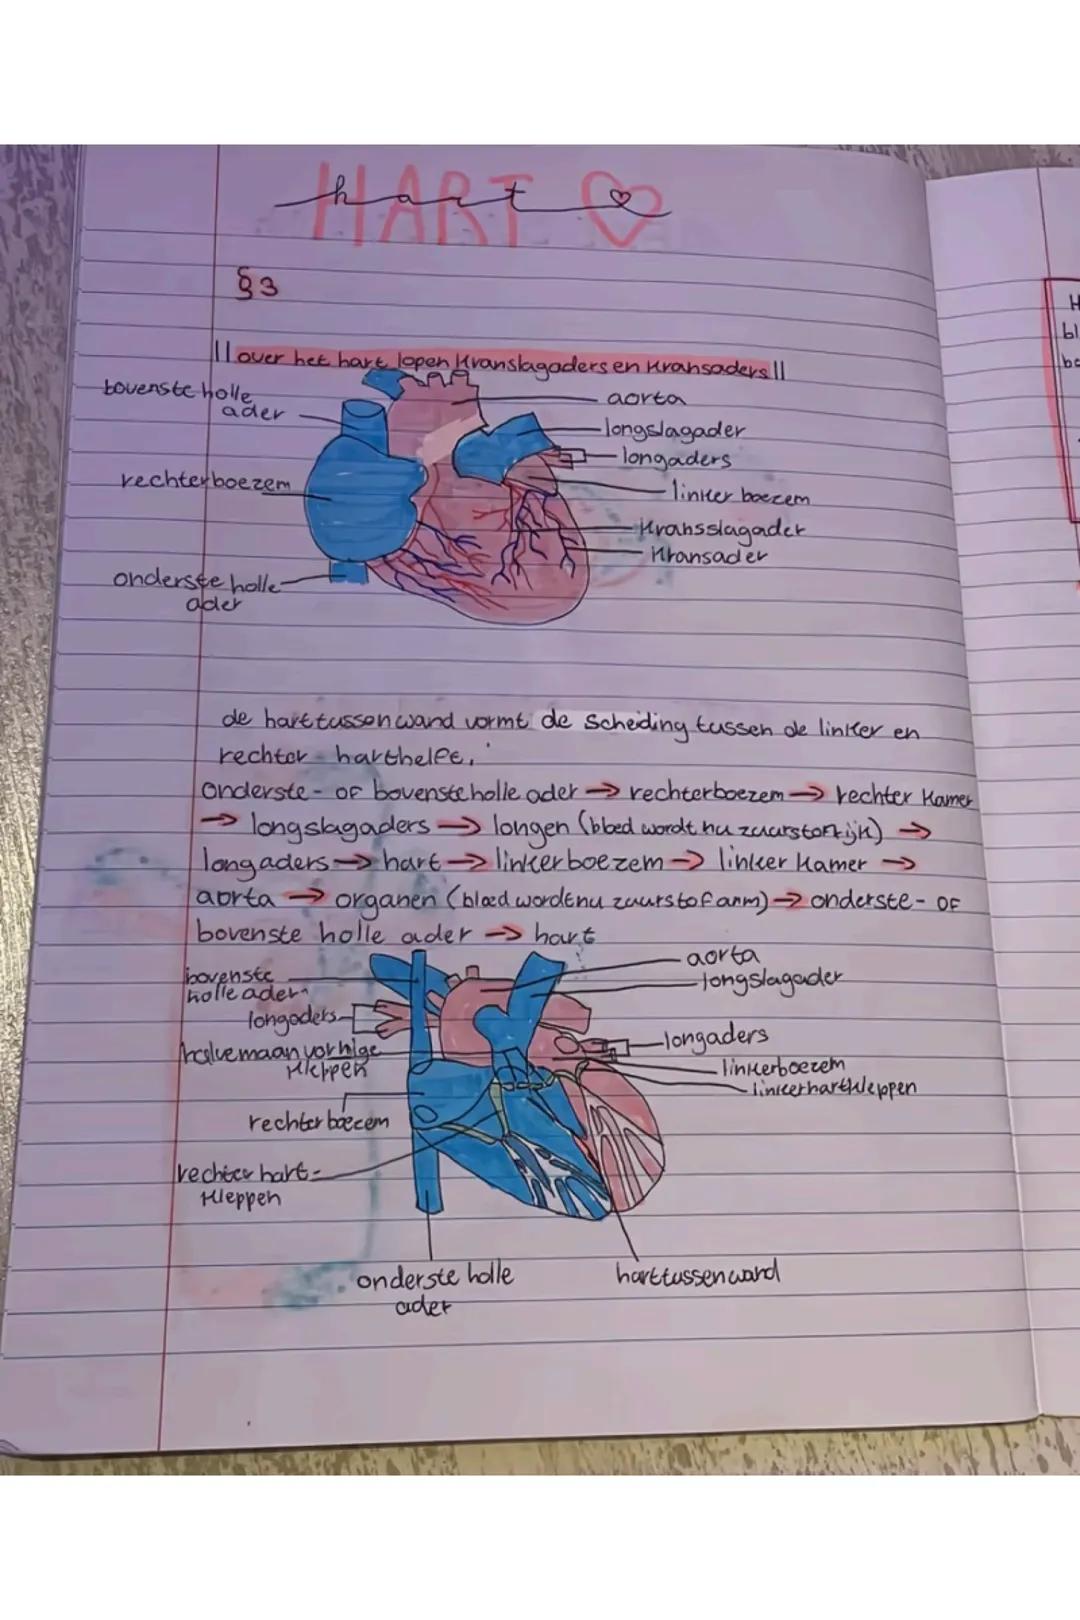 HART
hart
§3
|| over het hart lopen kranslagaders en kransaders ||
bovenste holle
ader
aorta
longslagader
longaders
rechterboezem
linker boezem
kransslagader
kransader
onderste holle
ader
de harttussenwand vormt de scheiding tussen de linker en
rechter harthelft.
onderste- of bovenste holle ader → rechterboezem → rechter kamer
→ longslagaders → longen (bloed wordt nu zuurstofrijk) →
longaders → hart → linkerboezem → linker kamer →
aorta → organen (bloed wordt nu zuurstofarm) → onderste- of
bovenste holle ader → hart
bovenste
holle ader
aorta
longslagader
longaders
halvemaanvormige
kleppen
longaders
linkerboezem
linkerhartkleppen
rechterboezem
rechter hart-
kleppen
onderste holle
ader
harttussenwand
H
bl
be